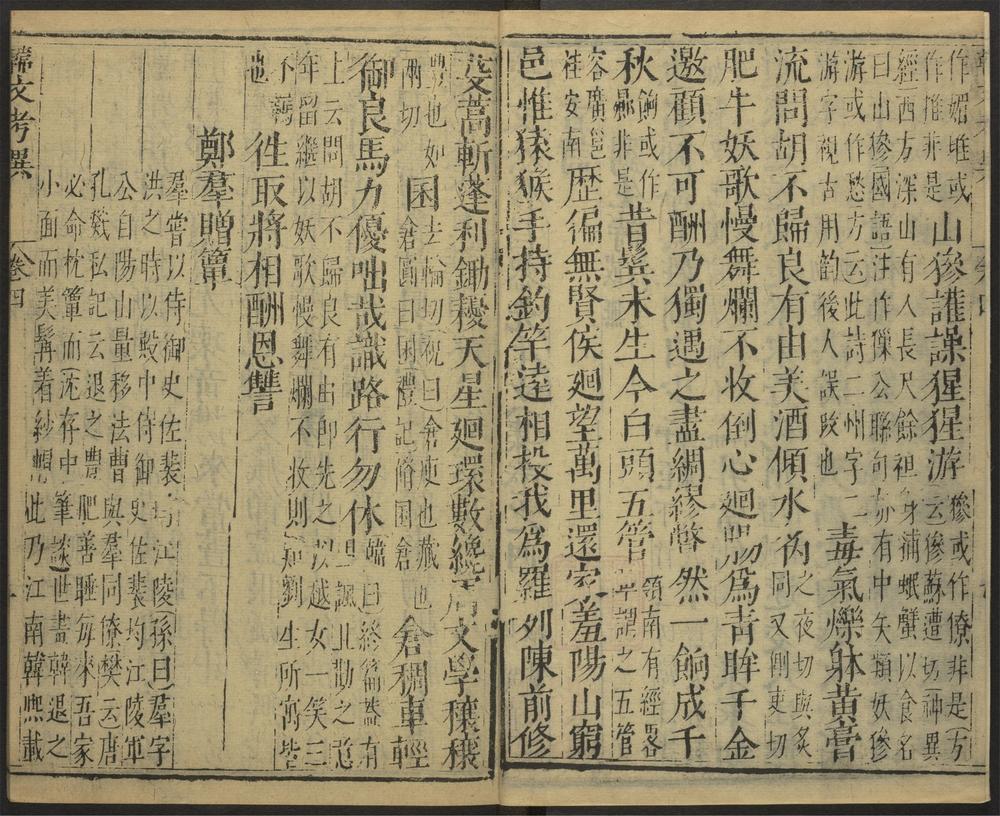 作媚堆或
作推非是
山㺑讙譟猩猩游
㺑或作僚非是方
云㺑蘇遭切神異
經西方深山有人長尺餘袒身浦蟣蟹以食名
曰山㺑國語注作㺐公聯句亦有中矢類妖㺑
游或作愁方云此詩二州字二
游字視古用韵後人誤改也
毒氣爍躰黃膏
流問胡不歸良有由美酒傾水
之夜切與炙
同又側吏切
肥牛妖歌慢舞爛不收倒心廻腸為青眸千金
邀顧不可酬乃獨遇之盡綢繆瞥然一餉成千
秋
餉或作
非是
昔鬓未生今白頭五管
嶺南有經畧
謂之五管
容廣邕
桂安南
歷徧無賢侯廻望萬里還家羞陽山窮
邑惟猿猴手持釣竿遠相投我為羅列陳前修
芟蒿斬蓬利鋤耰天星廻環數纔周文學穰穰
豐也如
兩切
囷
去輪切祝曰倉庾也藏也
倉圓曰囷禮記脩囷倉
倉稠車輕
御良馬力優咄哉識路行勿休
韓曰終篇蓋有
且諷且勸之意
上云問胡不歸良有由即先之以越女一笑三
年留繼以妖歌慢舞爛不收則知劉生所寓皆
不羈
也
往取將相酬恩讐
鄭羣贈簟
羣嘗以侍御史佐裴均江陵孫曰羣字
洪之時以殿中侍御史佐裴均江陵軍
公自陽山量移法曹與羣同僚樊云唐
孔戣私記云退之豊肥善睡每來吾家
必命枕簟而沈存中筆談世畫韓退之
小面而美髯着紗帽此乃江南韓熙載
韓文考異
卷四